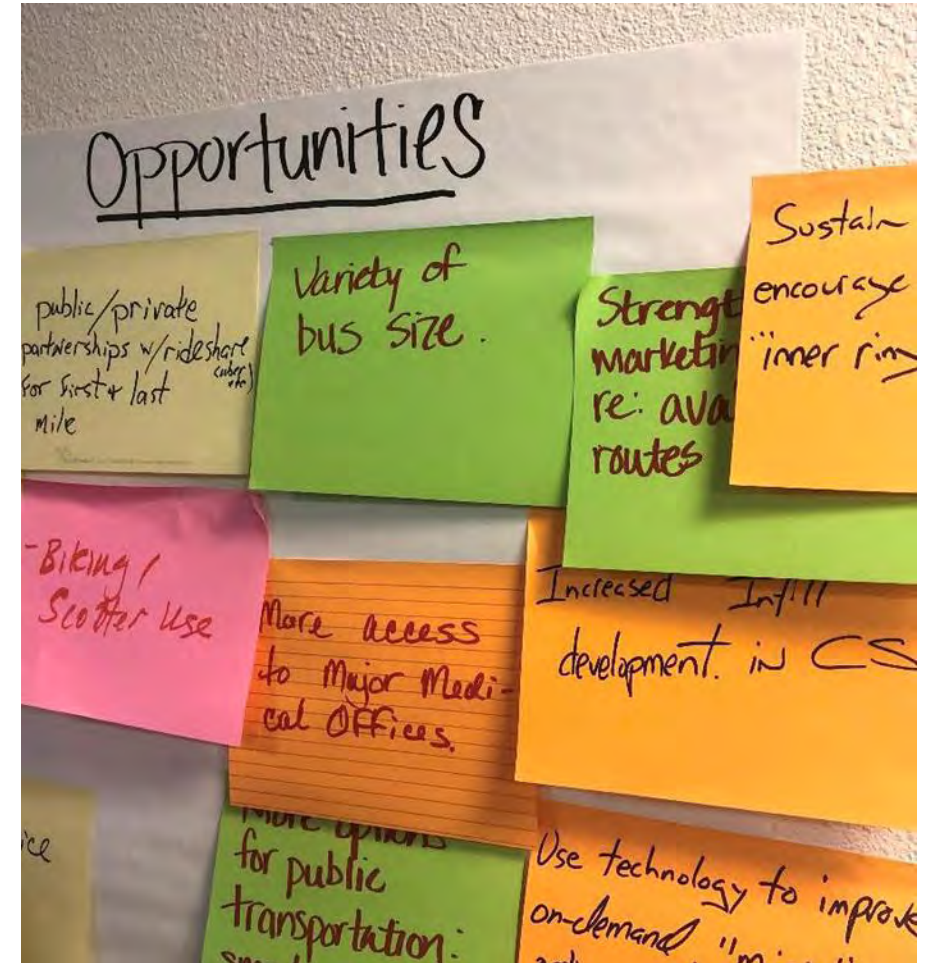 Opportunities
public/private
partnerships w/rideshare
(uber
etc)
for first + last
mile
Variety of
bus size.
Strengt
marketin
re: ava
routes
Sustain
encourage
"inner ring
-Biking/
Scotter Use
More access
to Major Medi-
cal Offices.
Increased Infill
development. in CS
ice
More options
for public
transportation:
Use technology to improve
on-demand